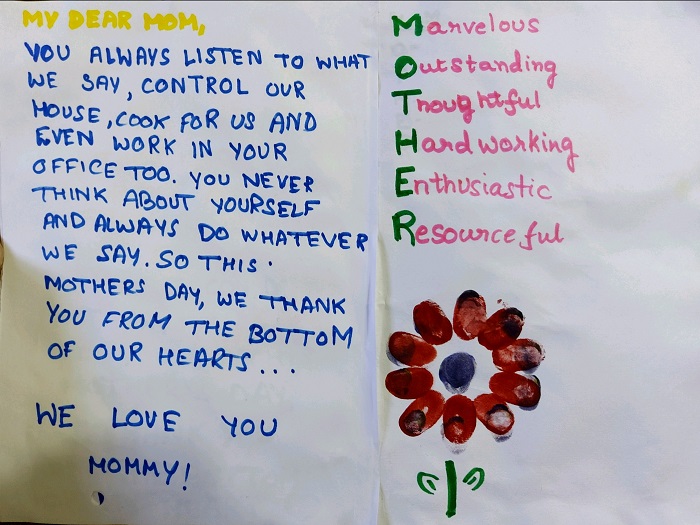 MY DEAR MOM,
YOU ALWAYS LISTEN TO WHAT
WE SAY, CONTROL OUR
HOUSE, COOK FOR US AND
EVEN WORK IN YOUR
OFFICE TOO. YOU NEVER
THINK ABOUT YOURSELF
AND ALWAYS DO WHATEVER
WE SAY. SO THIS
MOTHERS DAY, WE THANK
YOU FROM THE BOTTOM
OF OUR HEARTS...
WE LOVE YOU
MOMMY!
Marvelous
Outstanding
Thoughtful
Hardworking
Enthusiastic
Resourceful